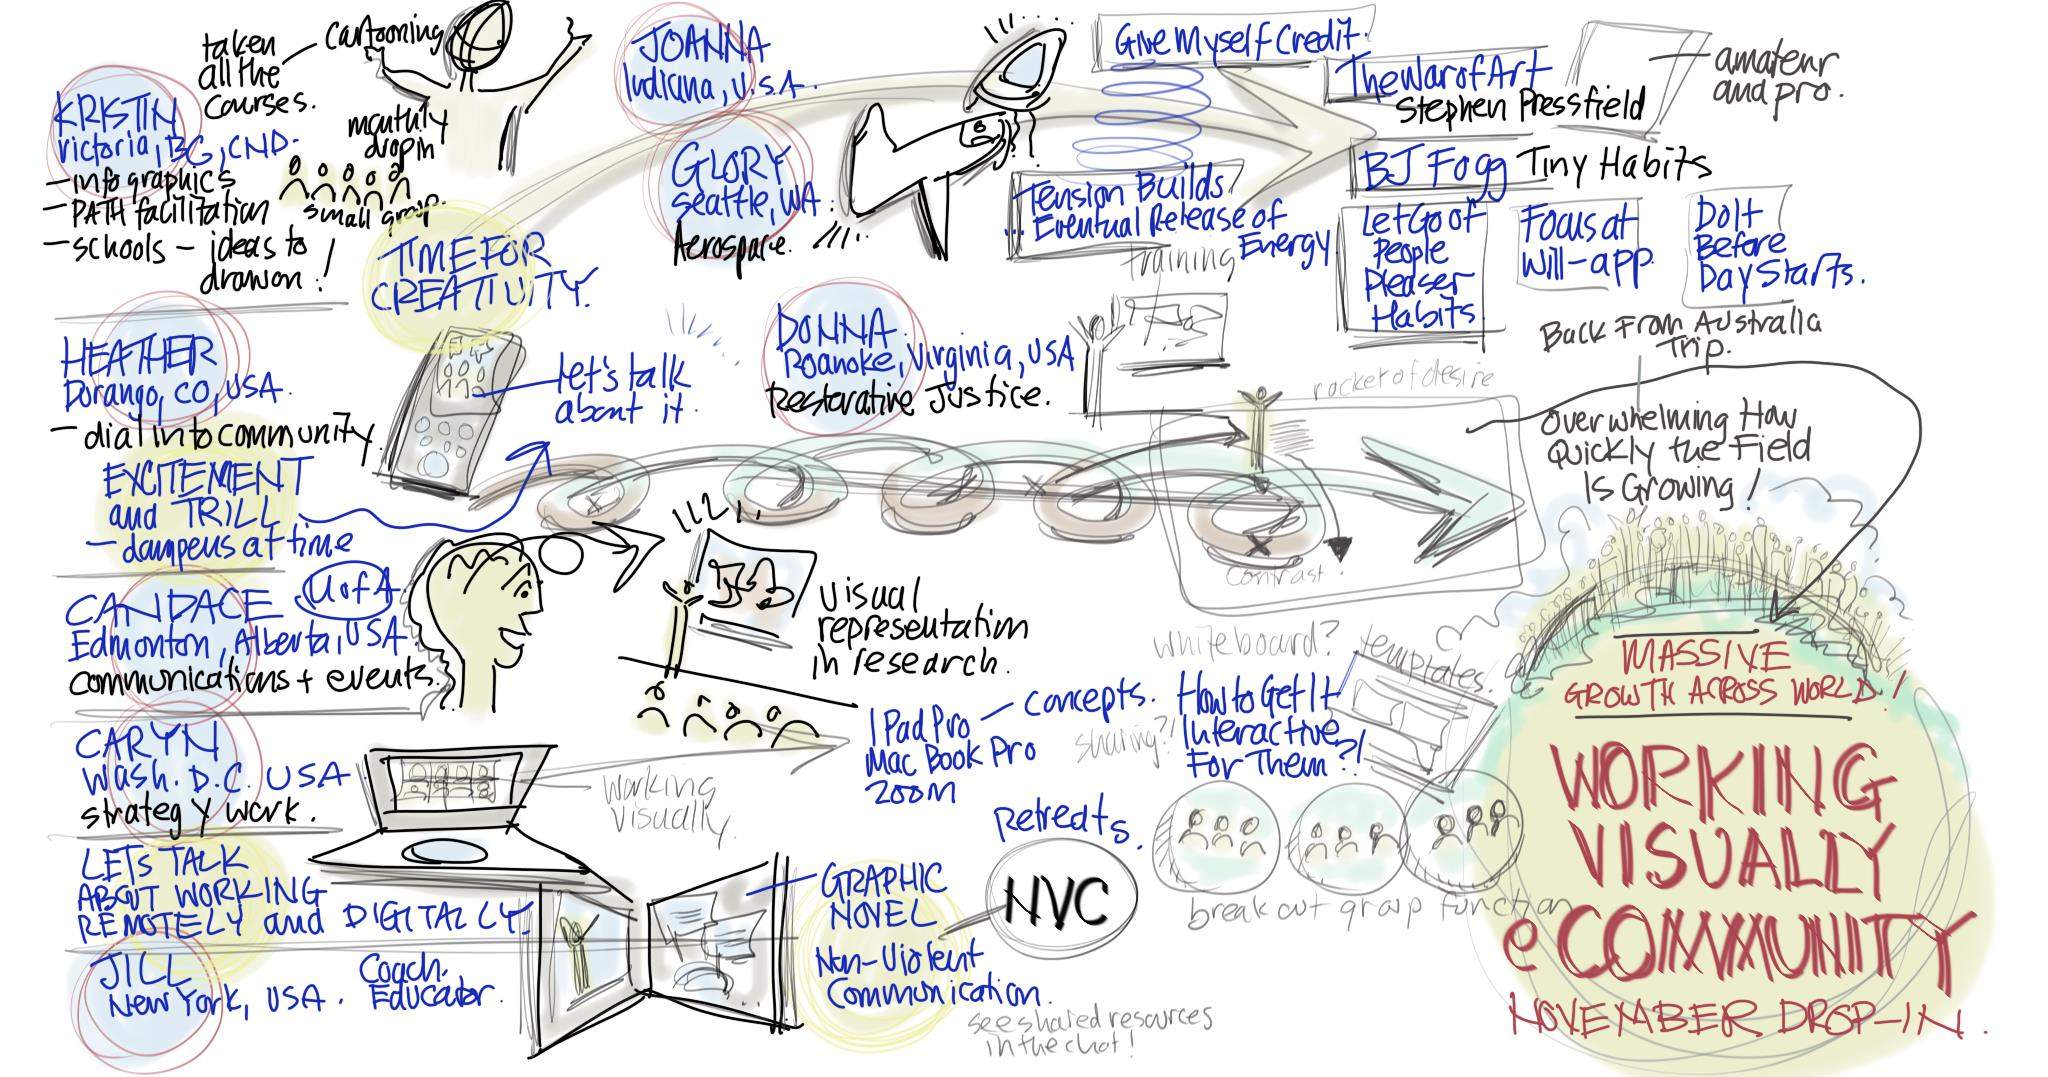 taken
all the
courses.
cartooning
KRISTIN
Victoria, BC, CND.
- infographics
- PATH facilitation
- schools - ideas to
drawon!
monthly
dropin
small group.
TIME FOR
CREATIVITY.
HEATHER
Dorango, CO, USA.
- dial into community.
EXCITEMENT
and TRILL
- dampens at time
let's talk
about it.
CANDACE
UofA
Edmonton, Alberta, USA.
communications + events.
CARYN
Wash. D.C. USA
strategy work.
LETS TALK
ABOUT WORKING
REMOTELY and DIGITALLY.
JILL
New York, USA.
Coach.
Educator.
JOANNA
Indiana, U.S.A.
GLORY
Seattle, WA.
Aerospace.
DONNA
Roanoke, Virginia, USA
Restorative Justice.
training
Give Myself Credit.
Tension Builds
... Eventual Release of
Energy
The War of Art
Stephen Pressfield
amateur
and pro.
BJ Fogg Tiny Habits
Let Go of
People
Pleaser
Habits
Focus at
Will-app
Do It
Before
Day Starts.
Back From Australia
Trip.
rocket of desire
contrast.
Overwhelming How
Quickly the Field
Is Growing!
visual
representation
in research.
I Pad Pro - concepts.
Mac Book Pro
zoom
working
visually.
whiteboard?
templates.
sharing?!
How to Get It
Interactive
For Them?!
break out group function
Retreats.
NVC
GRAPHIC
NOVEL
Non-Violent
Communication.
see shared resources
in the chat!
MASSIVE
GROWTH ACROSS WORLD!
WORKING
VISUALLY
e COMMMUNITY
NOVEMBER DROP-IN.